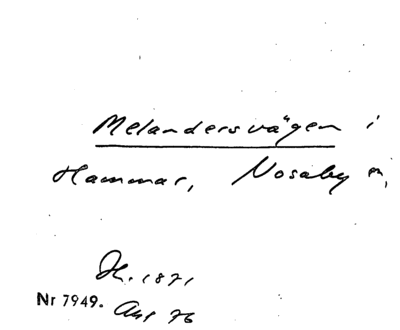 Melandersvägen i
Hammar, Nosaby sn,
H. 1871
Nr 7949. Aug 76